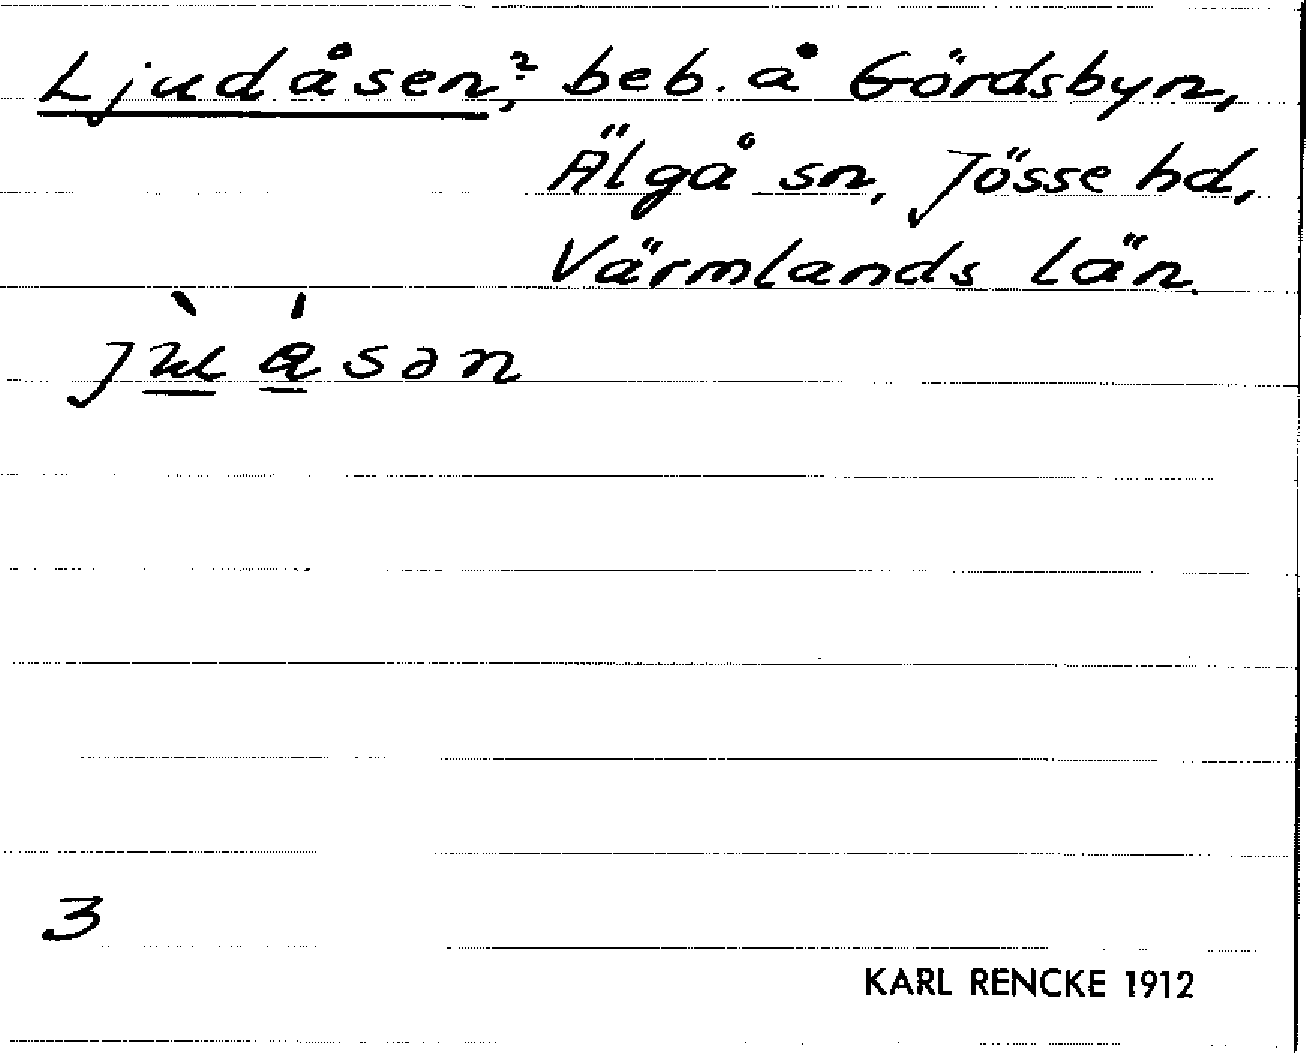 Ljudåsen,? beb. å Gördsbyn,
Älgå sn, Jösse hd,
Värmlands län.
sən
3
KARL RENCKE 1912